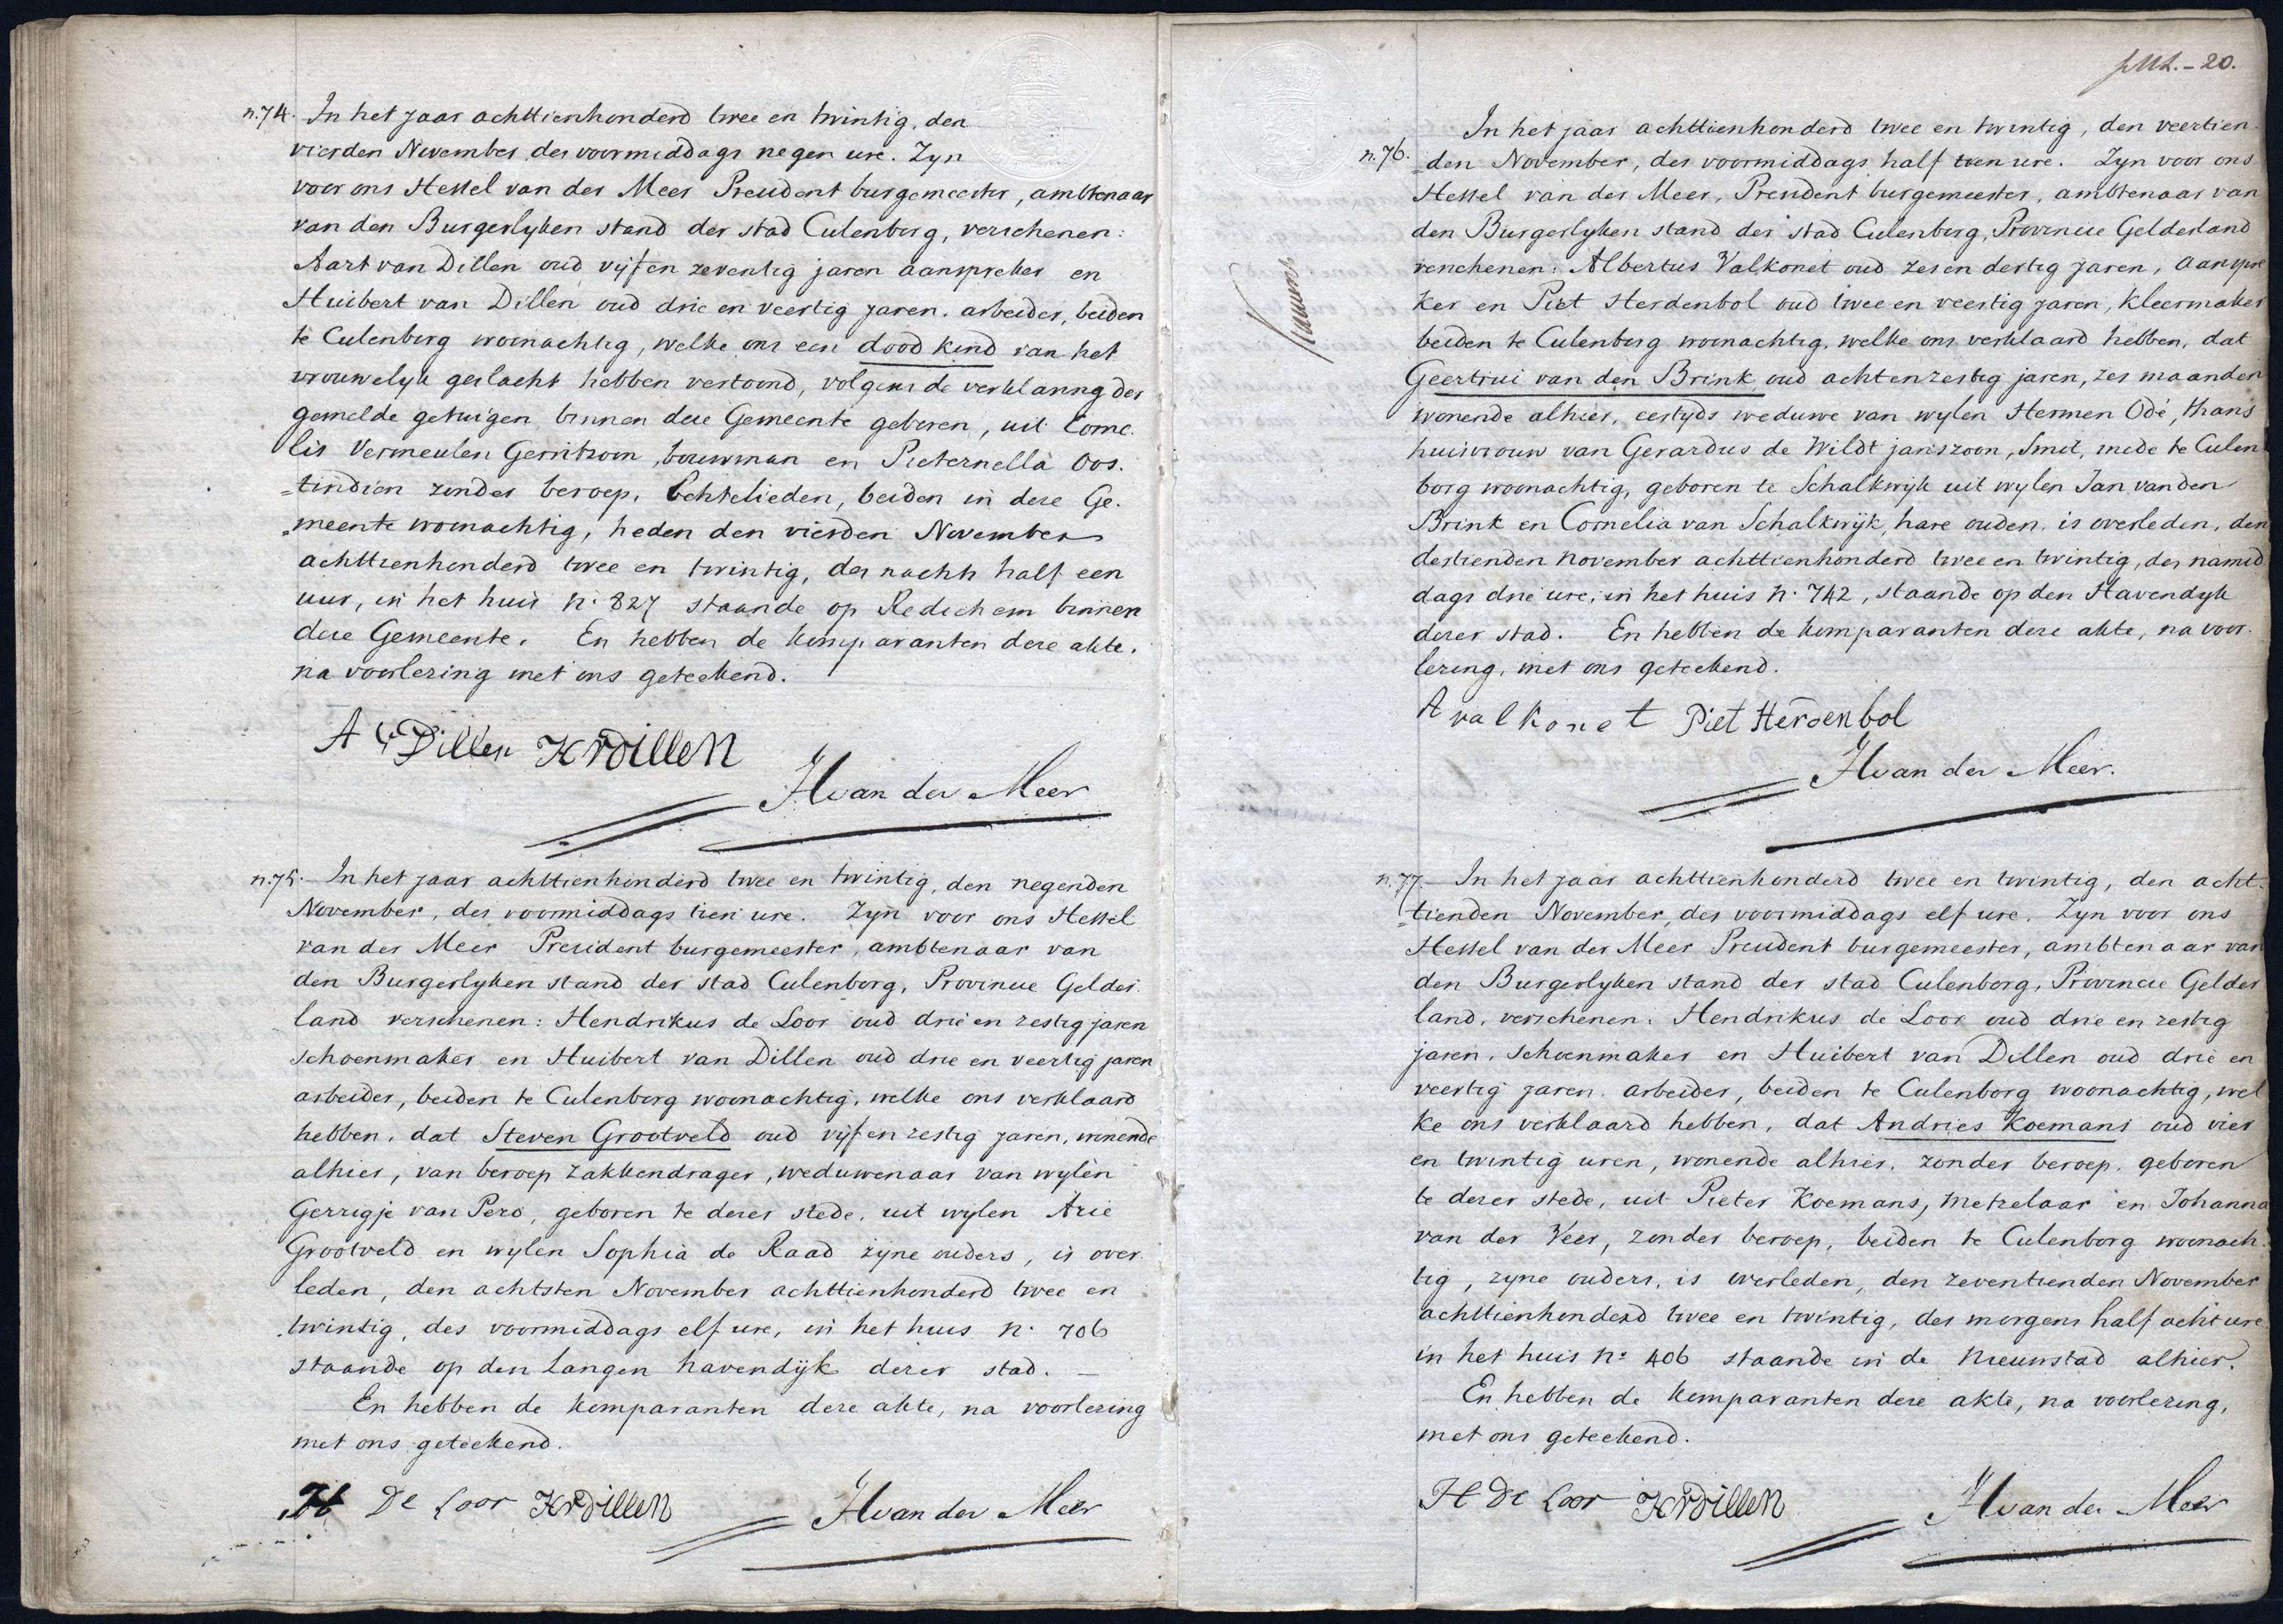 n. 74. In het jaar achttienhonderd twee en twintig, den
vierden November, des voormiddags negen ure. Zyn
voor ons Hessel van der Meer President burgemeester, ambtenaar
van den Burgerlyken stand der stad Culenborg, verschenen:
Aart van Dillen oud vijf en zeventig jaren aanspreker en
Huibert van Dillen oud drie en veertig jaren. arbeider, beiden
te Culenborg woonachtig, welke ons een dood kind van het
vrouwelyk geslacht hebben vertoond, volgens de verklaring der
gemelde getuigen binnen deze Gemeente geboren, uit Corne
lis Vermeulen Gerritzoon, bouwman en Pieternella Oos.
=tindien zonder beroep, Echtelieden, beiden in deze Ge.
=meente woonachtig, heden den vierden November
achttienhonderd twee en twintig, des nachts half een
uur, in het huis n. 827 staande op Redichem binnen
deze Gemeente. En hebben de komparanten deze akte,
na voorlezing met ons geteekend.
A V Dillen H V Dillen
H van der Meer
n. 75. In het jaar achttienhonderd twee en twintig, den negenden
November, des voormiddags tien ure. Zyn voor ons Hessel
van der Meer President burgemeester, ambtenaar van
den Burgerlyken stand der stad Culenborg, Provincie Gelder
land verschenen: Hendrikus de Loor oud drie en zestig jaren
schoenmaker en Huibert van Dillen oud drie en veertig jaren
arbeider, beiden te Culenborg woonachtig, welke ons verklaard
hebben, dat Steven Grootveld oud vijf en zestig jaren, wonende
alhier, van beroep zakkendrager, weduwenaar van wylen
Gerrigje van Pero, geboren te dezer stede, uit wylen Arie
Grootveld en wylen Sophia de Raad zijne ouders, is over
leden, den achtsten November achttienhonderd twee en
twintig, des voormiddags elf ure, in het huis n. 706
staande op den Langen havendijk dezer stad. —
En hebben de komparanten deze akte, na voorlezing
met ons geteekend.
H De Loor H V Dillen H van der Meer
20.
In het jaar achttienhonderd twee en twintig, den veertien
n. 76. =den November, des voormiddags half tien ure. Zyn voor ons
Hessel van der Meer, President burgemeester, ambtenaar van
den Burgerlyken stand der stad Culenborg, Provincie Gelderland
verschenen: Albertus Valkonet oud zes en dertig jaren, aanspre
ker en Piet Herdenbol oud twee en veertig jaren, kleermaker
beiden te Culenborg woonachtig, welke ons verklaard hebben, dat
Geertrui van den Brink oud acht en zestig jaren, zes maanden
wonende alhier, eertyds weduwe van wylen Hermen Odé, thans
huisvrouw van Gerardus de Wildt janszoon, Smit, mede te Culen
borg woonachtig, geboren te Schalkwijk uit wylen Jan van den
Brink en Cornelia van Schalkwijk, hare ouders, is overleden, den
dertienden november achttienhonderd twee en twintig, des namid
dags drie ure, in het huis n. 742, staande op den Havendyk
dezer stad. En hebben de komparanten deze akte, na voor.
lezing, met ons geteekend.
A valkonet Piet Herdenbol
H van der Meer.
n. 77. In het jaar achttienhonderd twee en twintig, den acht.
=tienden November, des voormiddags elf ure. Zyn voor ons
Hessel van der Meer President burgemeester, ambtenaar van
den Burgerlyken stand der stad Culenborg, Provincie Gelder
land, verschenen: Hendrikus de Loor oud drie en zestig
jaren, schoenmaker en Huibert van Dillen oud drie en
veertig jaren, arbeider, beiden te Culenborg woonachtig, wel
ke ons verklaard hebben, dat Andries Koemans oud vier
en twintig uren, wonende alhier, zonder beroep, geboren
te dezer stede, uit Pieter Koemans, metzelaar en Johanna
van der Veer, zonder beroep, beiden te Culenborg woonach.
tig, zyne ouders, is overleden, den zeventienden November
achttienhonderd twee en twintig, des morgens half acht ure
in het huis n: 406 staande in de Nieuwstad alhier.
En hebben de komparanten deze akte, na voorlezing,
met ons geteekend.
H De Loor H V Dillen H van der Meer